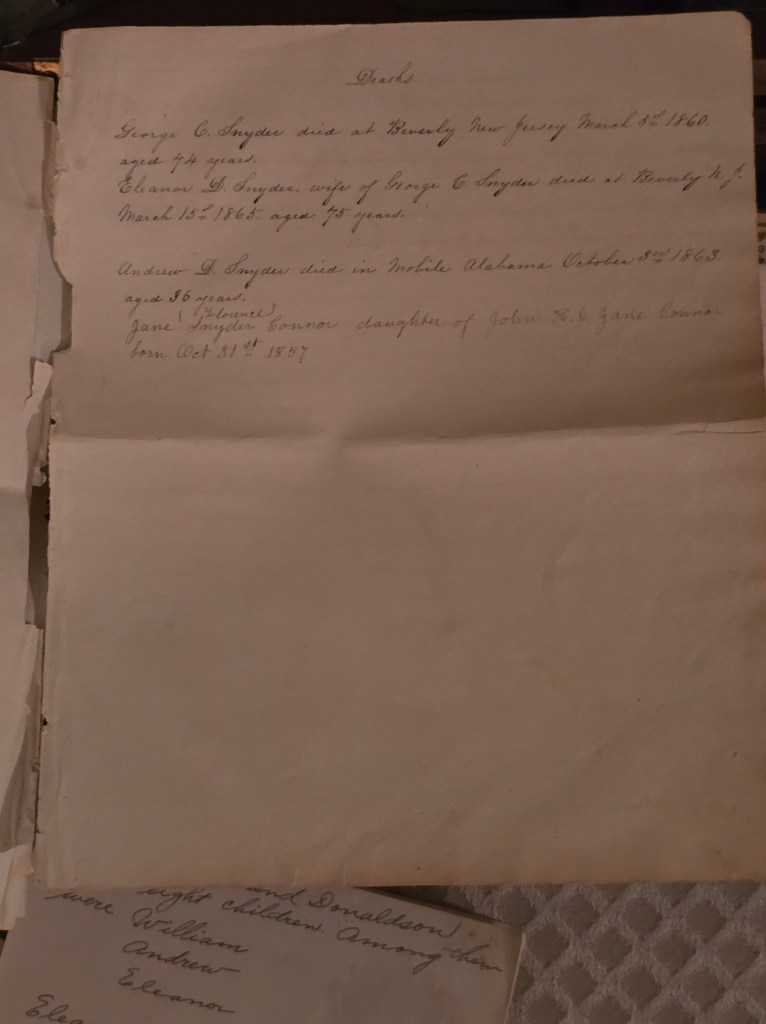 Deaths.
George C. Snyder died at Beverly New Jersey March 5th 1860.
aged 74 years.
Eleanor D. Snyder, wife of George C. Snyder died at Beverly N. J.
March 15th 1865. aged 75 years.
Andrew D. Snyder died in Mobile Alabama October 3rd 1863.
aged 36 years.
(Florence)
Jane Snyder Connor daughter of John K. & Jane Connor
born Oct 31st 1857
and Donaldson
eight children. Among them
were William
Andrew
Eleanor